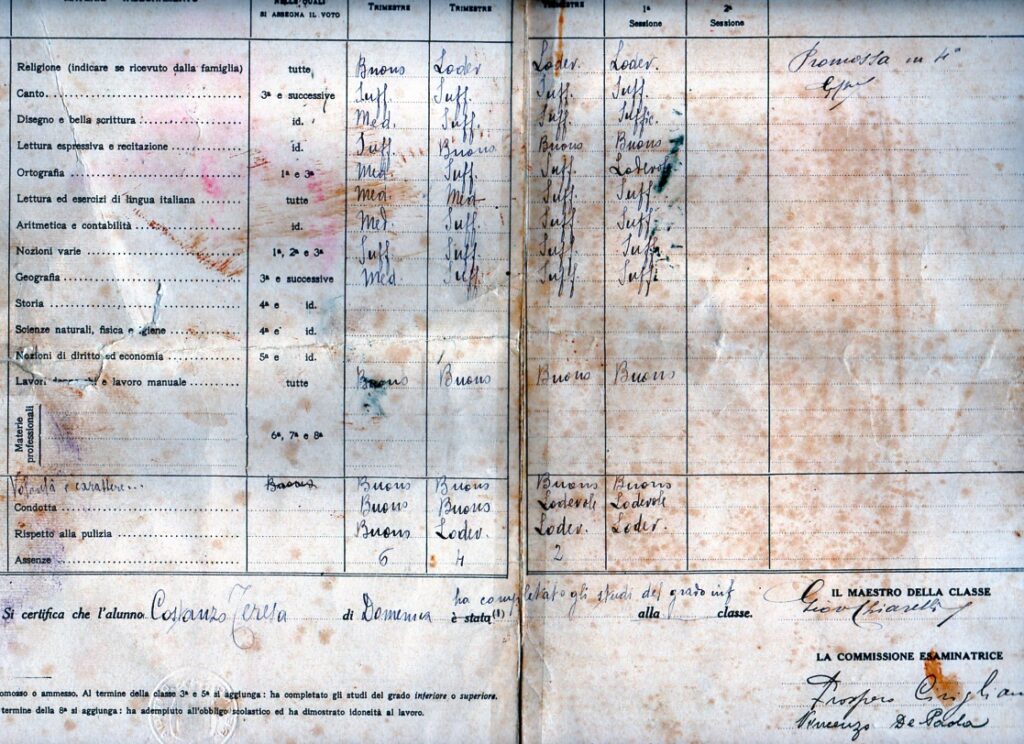 NELLE QUALI SI ASSEGNA IL VOTO TRIMESTRE TRIMESTRE TRIMESTRE 1ª Sessione 2ª Sessione
Religione (indicare se ricevuto dalla famiglia) tutte Buono Lodev Lodev. Lodev. Promossa in 4ª
Canto 3ª e successive Suff. Suff. Suff. Suff.
Disegno e bella scrittura id. Med. Suff. Suff. Suffic.
Lettura espressiva e recitazione id. Suff. Buono Buono Buono
Ortografia 1ª e 3ª Med Suff. Suff. Lodevole
Lettura ed esercizi di lingua italiana tutte Med Med Suff. Suff.
Aritmetica e contabilità id. Med. Suff. Suff. Suff.
Nozioni varie 1ª, 2ª e 3ª Suff Suff. Suff. Suff.
Geografia 3ª e successive Med. Suff. Suff Suff.
Storia 4ª e id.
Scienze naturali, fisica e igiene 4ª e id.
Nozioni di diritto ed economia 5ª e id.
Lavori e lavoro manuale tutte Buono Buono Buono Buono
Materie professionali 6ª, 7ª e 8ª
Volontà e carattere... Buono Buono Buono Buono Buono
Condotta Buono Buono Lodevole Lodevole
Rispetto alla pulizia Buono Lodev. Lodev. Lodev.
Assenze 6 4 2
ha completato gli studi del grado inf
Si certifica che l'alunno Costanzo Teresa di Domenica è stata (1) alla classe.
IL MAESTRO DELLA CLASSE
Giov. Chiarelli
LA COMMISSIONE ESAMINATRICE
Prospero Cirigliano
Vincenzo De Paola
omosso o ammesso. Al termine della classe 3ª e 5ª si aggiunga: ha completato gli studi del grado inferiore o superiore.
termine della 8ª si aggiunga: ha adempiuto all'obbligo scolastico ed ha dimostrato idoneità al lavoro.